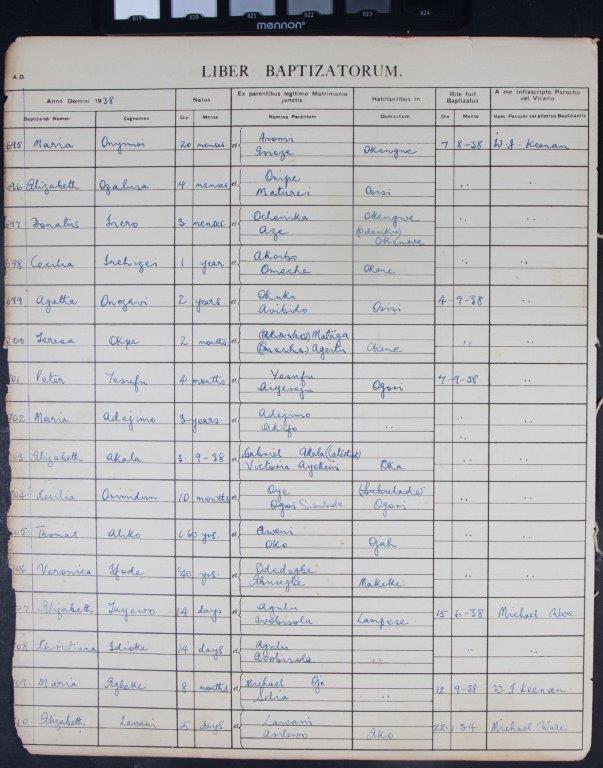 019 020 021 022 023 024
mennon
LIBER BAPTIZATORUM.
A.D.
Anno Domini 1938 Natus Ex parentibus legitimo Matrimonio junctis Habitantibus in Rite fuit Baptizatus A me Infrascripto Parocho vel Vicario
Baptizandi Nomen Cognomen Die Mense Nomina Parentum Domicilium Die Mense Nom. Parochi vel alterius Baptizantis
695 Maria Onymoi 20 menses et Ineze Okengwe 7 8-38 W. J. Keenan
696 Elizabeth Ozalusa 4 menses Onipe
et Maturei Osisi
697 Donatus Isero 3 menses Ochenika Okengwe
et Aze (Odenku)
Okenwe
698 Cecilia Irehizei 1 year Akorbo
et Omeche Okene
699 Agatha Onozavi 2 years Okuku
et Avibido Osisi 4-9-38
700 Teresa Okpe 2 months Mataga
et Agertu Okene
701 Peter Yesufu 4 months Yesufu
et Aiyeseju Ogori 7-9-38
702 Maria Adejimo 3 years Adejimo
et Akifo
703 Elizabeth Akala 3. 9-38 Gabriel Akala (Catechist)
et Victoria Ayekemi Oka
704 Cecilia Orimidun 10 months Oye (Subulade)
et Ogosi Subulade Ogori
705 Thomas Aliko c 60 yrs. Aweni
et Oko Ojah
706 Veronica Ifode yrs. Ododegbe
et Ahuregbe Makeke
707 Elizabeth Tayewo 14 days Agulu
et Avobisola Lampese 15 6-38 Michael
708 Christiana Idioke 14 days Agulu
et Avobisola
709 Maria Agbeke 8 months Michael Go
et Selia 12 9-38 W. J. Keenan
710 Elizabeth Lawani 15 days Lawani
et Asilewo Ako 22 1 34 Michael Ware